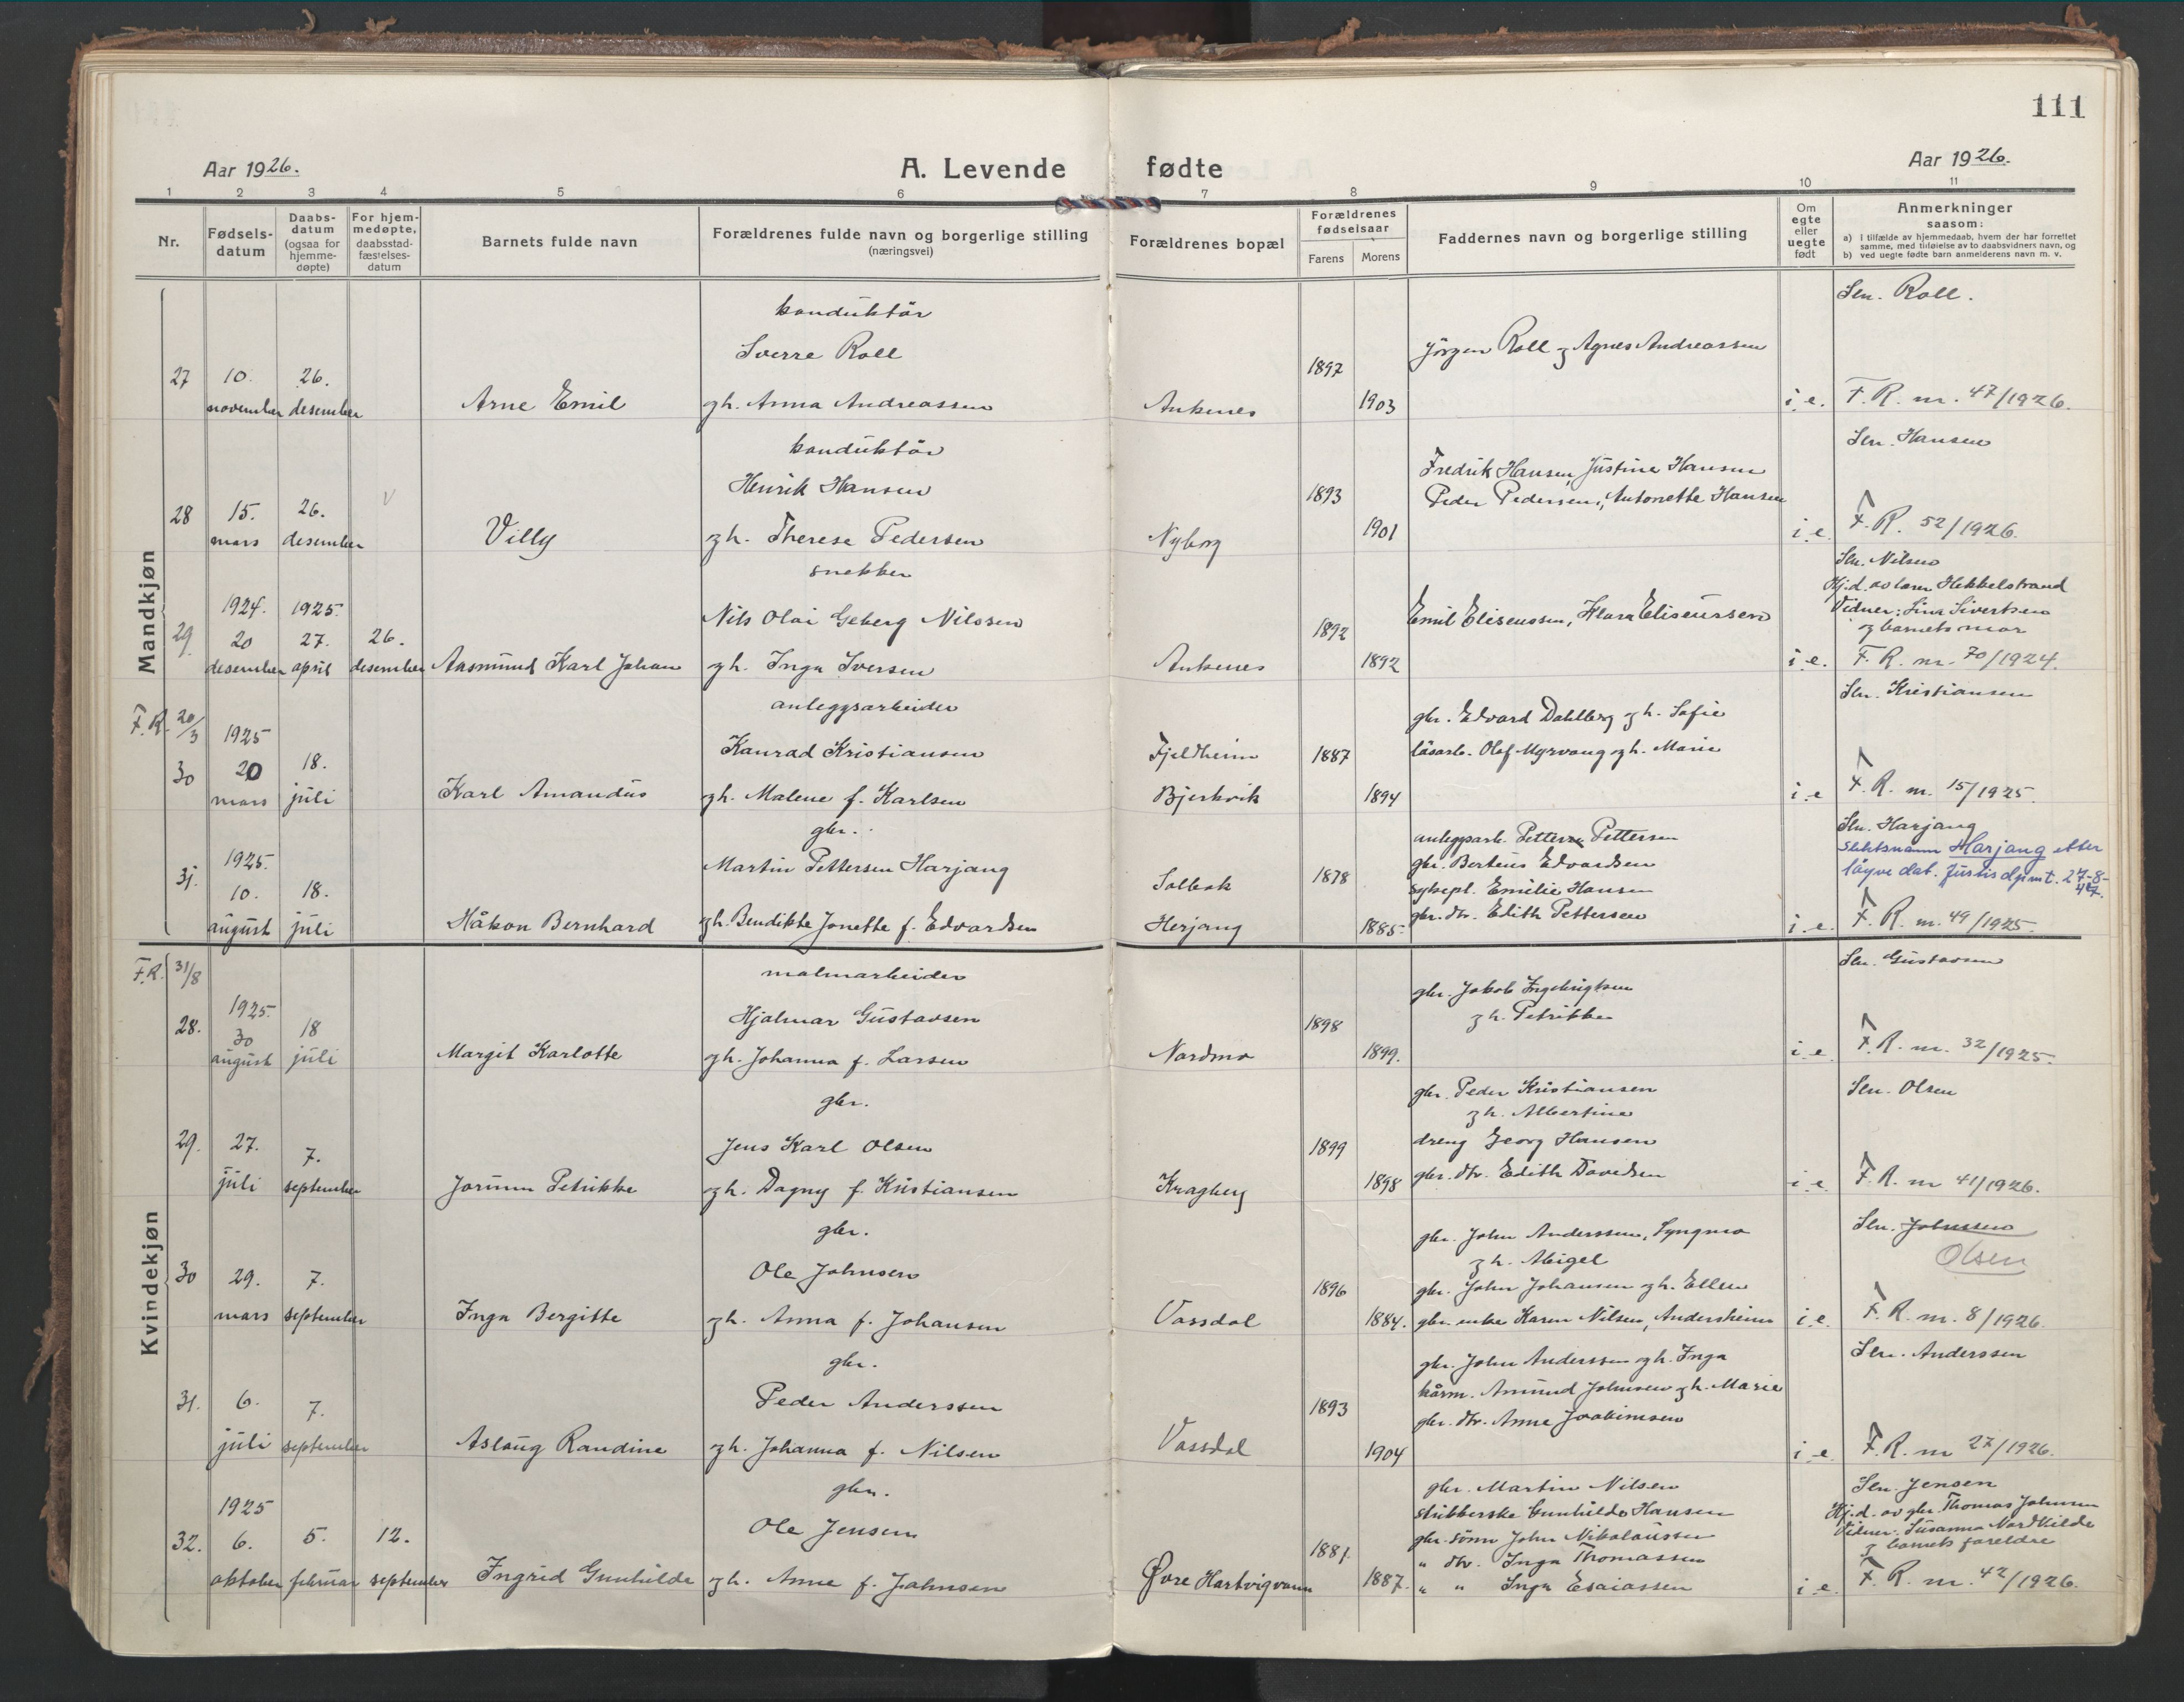 111
Aar 1926.
A. Levende fødte
Aar 1926.
1 2 3 4 5 6 7 8 9 10 11
Nr.
Fødsels-
datum
Daabs-
datum
(ogsaa for
hjemme-
døpte)
For hjem-
medøpte,
daabsstad-
fæstelses-
datum
Barnets fulde navn
Forældrenes fulde navn og borgerlige stilling
(næringsvei)
Forældrenes bopæl
Forældrenes
fødselsaar
Farens Morens
Faddernes navn og borgerlige stilling
Om
egte
eller
uegte
født
Anmerkninger
saasom:
a) i tilfælde av hjemmedaab, hvem der har forrettet
samme, med tilføielse av to daabsvidners navn, og
b) ved uegte fødte barn anmelderens navn m. v.
Mandkjøn
konduktör
Sverre Roll
27 10. november 26. desember Arne Emil
gh. Anna Andreassen
Ankenes
1897
1903
Jörgen Roll og Agnes Andreassen
i. e.
Sln. Roll.
F. R. nr. 47/1926.
konduktör
Henrik Hansen
28 15. mars 26. desember V Villy
gh. Therese Pedersen
Nyborg
1893
1901
Fredrik Hansen, Justine Hansen
Peder Pedersen, Antonette Hansen
i. e.
Sln. Hansen
F. R. 52/1926.
snekker
Nils Olai Geberg Nilssen
29. 1924. 20 desember 1925. 27. april 26. desember Aasmund Karl Johan
gh. Inga Iversen
Ankenes
1892
1892
Emil Eliseussen, Klara Eliseussen
i. e.
Sln. Nilsen
Hj.d. av lærer Hekkelstrand
Vidner: Lina Sivertsen
og barnets mor
F. R. nr. 70/1924.
F. R. 20/3
anleggsarbeider
Konrad Kristiansen
30 1925 20 mars 18. juli Karl Amandus
gh. Malene f. Karlsen
Fjeldheim
Bjerkvik
1887
1894
gbr. Edvard Dahlberg gh. Sofie
låsarb. Olaf Myrvang gh. Marie
i. e
Sln. Kristiansen
F. R. nr. 15/1925.
gbr.
Martin Pettersen Harjang
31. 1925. 10. august 18. juli Håkon Bernhard
gh. Bendikte Jonette f. Edvardsen
Solbak
Herjang
1878
1885.
anleggsarb. Petter Pettersen
gbr. Berteus Edvardsen
sykepl. Emilie Hansen
gbr. dtr. Edith Pettersen
i. e.
Sln. Harjang
Slektsnavn Harjang etter
löyve dat. Justisdpmt. 27-8-
47.
F. R. nr. 49/1925.
Kvindekjøn
F.R. 31/8
malmarbeider
Hjalmar Gustavsen
28. 1925. 30 august 18 juli Margit Karlotte
gh. Johanna f. Larsen
Nordmo
1898
1899.
gbr. Jakob Ingebrigtsen
gh. Petrikke
i. e.
Sln. Gustavsen
F. R. nr. 32/1925.
gbr.
Jens Karl Olsen
29. 27. juli 7. september Jorunn Petrikke
gh. Dagny f. Kristiansen
Kragberg
1899
1898
gbr. Peder Kristiansen
gh. Albertine
dreng Georg Hansen
gbr. dtr. Edith Davidsen
i. e.
Sln. Olsen
F. R. nr 41/1926.
gbr.
Ole Johnsen
30 29. mars 7. september Inga Bergitte
gh. Anna f. Johansen
Vassdal
1896
1884.
gbr. John Anderssen, Lyngmo
gh. Abigel
gbr. John Johansen gh. Ellen
gbr. enke Karen Nilsen, Andersheim
i. e.
Sln. Johnsen
Olsen
F. R. nr. 8/1926.
gbr.
Peder Anderssen
31. 6. juli 7. september Aslaug Randine
gh. Johanna f. Nilsen
Vassdal
1893
1904
gbr. John Anderssen gh. Inga
kårm. Amund Johnsen gh. Marie
gbr. dtr. Anne Joakimsen
i. e.
Sln. Anderssen
F. R. nr 27/1926.
gbr.
Ole Jensen
32. 1925 6. oktober 5. februar 12. september Ingrid Gunhilde
gh. Anne f. Johnsen
Øvre Hartvigvann
1881.
1887.
gbr. Martin Nilsen
skredderske Gunhilde Hansen
gbr. sönn John Nikolaussen
" dtr. Inga Thomassen
" " Inga Esaiassen
i. e.
Sln. Jensen
Hj.d. av gbr. Thomas Johnsen
Vidner: Susanna Nordkilde
og barnets foreldre
F. R. nr. 42/1926.